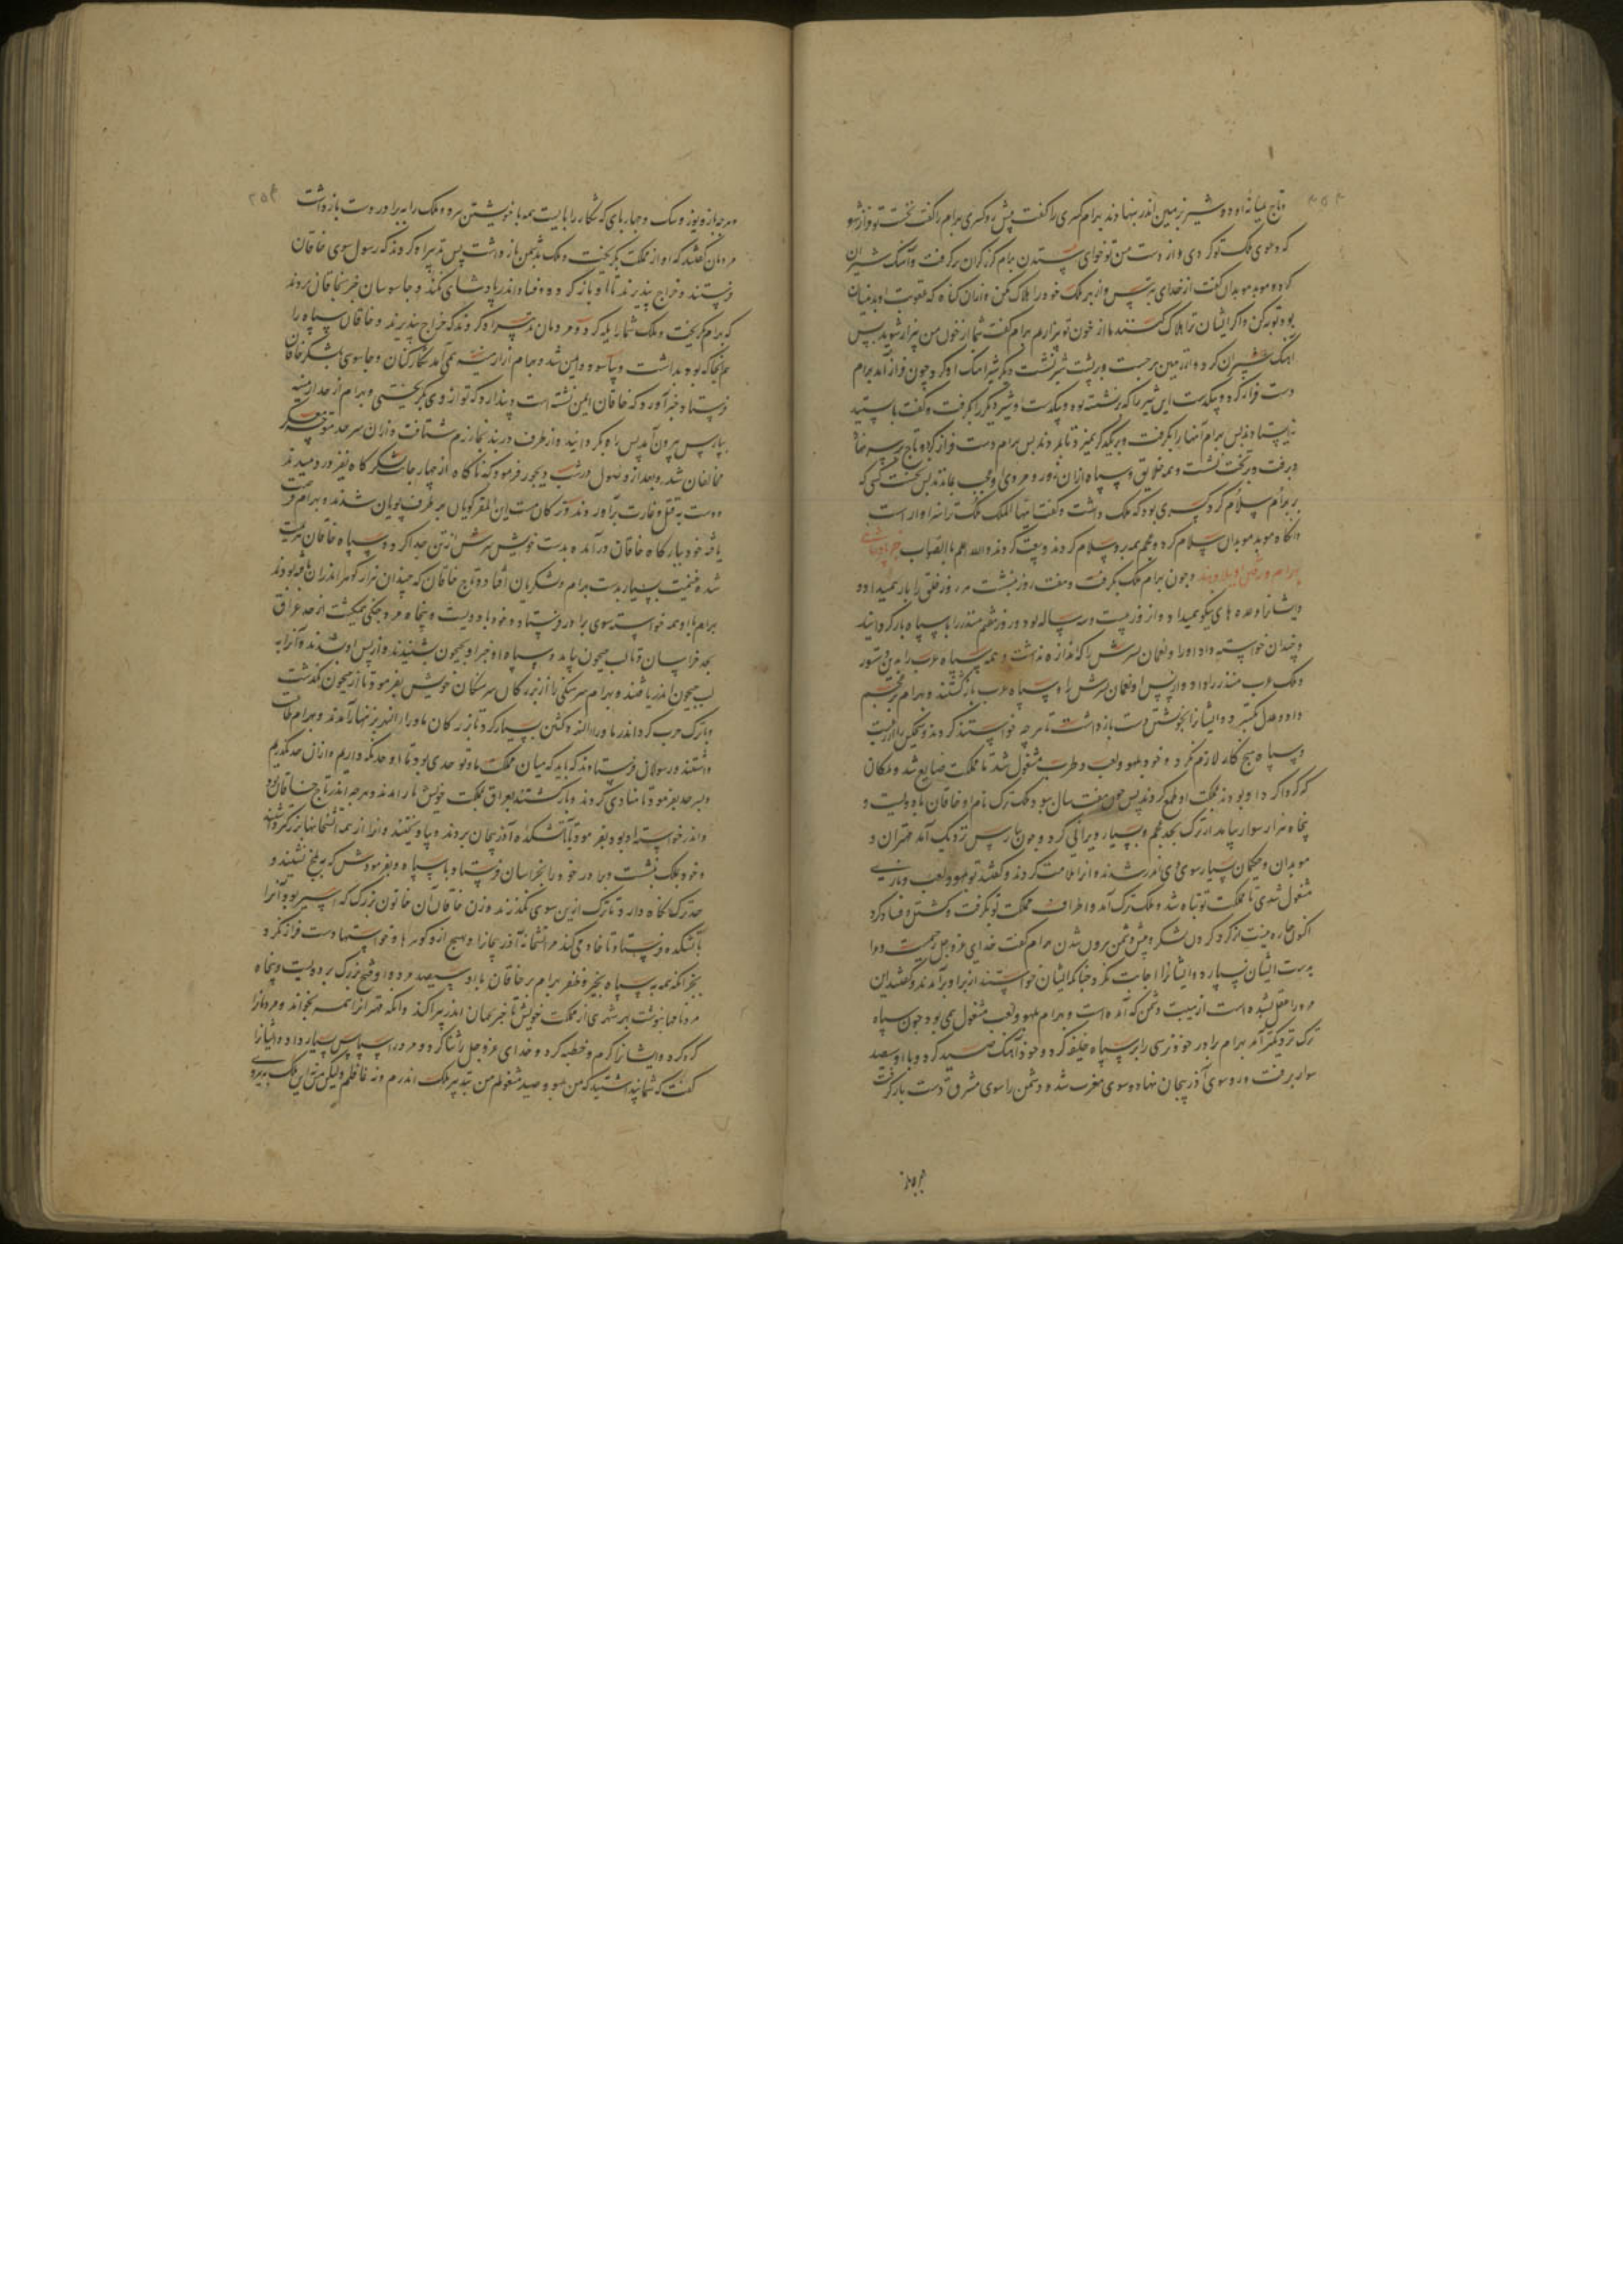 وتاج میانهٔ او دو شیر بزمین اندر بنهادند بهرام کسری را گفت پیش رو کسری بهرام را گفت نخست تو فراز شو
که دعوی ملک تو کردی و از دست من تو خوای ستدن بهرام گرز گران برگرفت و آهنگ شیران
کرد و موبد موبدان گفت از خدای بترس و از بهر ملک خود را هلاک مکن و از آن گناه که عقوبت او بدینسان
بود توبه کن و اگر ایشان ترا هلاک کنند ما از خون تو بیزاریم بهرام گفت شما از خون من بیزار شوید پس
آهنگ شیران کرد و از زمین برجست و بر پشت شیر نشست و دیگر شیر آهنگ او کرد چون فراز آمد بهرام
دست فراز کرد و بیکدست این شیر را که برنشسته بود و بیکدست او شیر دیگر را بگرفت و گفت بایستید
بایستادند پس بهرام آنها را بگرفت و بر یکدیگر میزد تا بمردند پس بهرام دست فراز کرد و تاج بر سر نهاد
و برفت و بر تخت نشست و همه خلایق و سپاه از آن زور و مردی او عجب بماندند پس نخست کسی که
بر بهرام سلام کرد کسری بود که ملک داشت و گفت ایها الملک ملک ترا سزاوار است
آنگاه موبد موبدان سلام کرد و عجم همه برو سلام کردند و بیعت کردند والله اعلم بالصواب خبر پادشاهی
بهرام و رفتن او بلاد هند و چون بهرام ملک بگرفت و هفت روز بنشست هر روز خلق را بار همیداد و
ایشانرا وعده های نیکو همیداد و از وز بیست و سه ساله بود و روز هشتم منذر را با سپاه بازگردانید
و چندان خواسته داد او را و نعمان پسرش را که اندازه نداشت و همه سپاه عرب را بدین دستور
و ملک عرب منذر را داد و از پس او نعمان پسرش را و سپاه عرب بازگشتند و بهرام بر عجم
داد و عدل بگسترد و ایشانرا بخویشتن دست بازداشت تا هر چه خواستند کردند و هیچکس را از رعیت
و سپاه هیچ کار لازم نکرد و خود بلهو و لعب و طرب مشغول شد تا مملکت ضایع شد و ملکان
که گرداگرد او بودند بمملکت او طمع کردند پس چون هفت سال ببود ملک ترک نام او خاقان با دویست و
پنجاه هزار سوار بیامد از ترک بحد عجم و بسیار ویرانی کرد و چون بپارس نزدیک آمد مهتران و
موبدان و حکیمان بسیار سوی وی اندر شدند و او را ملامت کردند و گفتند تو بلهو و لعب و بازی
مشغول شدی تا مملکت تو تباه شد و ملک ترک آمد و اطراف مملکت تو بگرفت و کشتن و فساد کرد
اکنون چاره نیست از گرد کردن لشکر و پیش دشمن بیرون شدن بهرام گفت خدای عزوجل رحیمست و ما را
بدست ایشان نسپارد و ایشانرا اجابت نکرد چنانکه ایشان خواستند از بر او برآمدند و گفتند این
مرد را عقل بشده است از هیبت دشمن که آمده است و بهرام بلهو و لعب مشغول همی بود چون سپاه
ترک نزدیکتر آمد بهرام برادر خود نرسی را بر سپاه خلیفه کرد و خود آهنگ صید کرد و با او سیصد
سوار برفت و روسوی آذربیجان نهاد و سوی مغرب شد و دشمن را سوی مشرق دست بازگرفت
و هرچه باز و یوز و سگ و چهارپای که شکار را بایست همه با خویشتن ببرد و ملک را به برادر دست بازداشت
مردمان گفتند که او از مملکت بگریخت و ملک بدشمن بازداشت پس تدبیر او کردند که رسول سوی خاقان
فرستند و خراج بپذیرند تا او بازگردد و فساد اندر پادشاهی نکند و جاسوسان خبر بخاقان بردند
که بهرام بگریخت و ملک شما را یله کرد و مردمان تدبیر او کردند که خراج بپذیرند و خاقان سپاه را
هم آنجا که بود بداشت و بیاسود و ایمن شد و بهرام از ارمنیه همی آمد شکارکنان و جاسوسی بلشکر خاقان
فرستاد و خبر آورد که خاقان ایمن نشسته است و پندارد که تو از وی بگریختی و بهرام از حد ارمنیه
بپارس بیرون آمد پس راه بگردانید و از طرف دربند بخوارزم شتافت و از آن سرحد متوجه لشکر
مخالفان شد و بعد از وصول در شب دیجور فرمود که ناگاه از چهار جانب لشکرگاه نفیر دردمیدند
و دست به قتل و غارت برآوردند ترکان مست این المفر گویان بهر طرف پویان شدند و بهرام فرصت
یافته خود ببارگاه خاقان درآمده بدست خویش سرش از تن جدا کرد و سپاه خاقان هزیمت
شده غنیمت بسیار بدست بهرام و لشکریان افتاد و تاج خاقان که چندان هزار گوهر اندر آن بافته بودند
بهرام با او همه خواسته سوی برادر فرستاد و خود با دویست و پنجاه مرد جنگی بگشت از حد عراق
بحد خراسان و تا لب جیحون بیامد و سپاه او خبر او بجیحون بشنیدند و از پس او بشدند و او را به
لب جیحون اندر یافتند و بهرام سرهنگی را از بزرگان سرهنگان خویش بفرمود تا از جیحون بگذشت
و با ترک حرب کرد اندر ماوراء النهر و کشتن بسیار کرد تا بزرگان ماوراء النهر بزنهار آمدند و بهرام طاعت
داشتند و رسولان فرستادند که باید که میان مملکت ما و تو حدی بود تا ما آن حد نگه داریم و از آن حد نگذریم
و بر حد بفرمود تا منادی کردند و بازگشتند بعراق بمملکت خویش باز آمدند و هر چه اندر تاج خاقان بود
و اندر خواسته او بود بفرمود تا بآتشکده آذربیجان بردند و بیاویختند و او را از همه آتشخانها بزرگتر داشتند
و خود بملک بنشست و برادر خود را بخراسان فرستاد با سپاه و بفرمودش که به بلخ نشیند و
حد ترک نگاه دارد تا ترک ازین سوی نگذرند و زن خاقان آن خاتون بزرگ که اسیر بود او را
بآتشکده فرستاد تا خادمی کند مر آتشخانهٔ آذربیجانرا و هیچ از آن گوهرها و خواستها دست فراز نکرد
بجز آنکه همه به سپاه بخرید و ظفر بهرام بر خاقان با او سیصد مرد بود او فتح بزرگ بر دویست و پنجاه
مرد نامها بنوشت بهر شهری از مملکت خویش تا خبر بجهان اندر پراکند و آنکه مهتر آنرا همه بخواند و مردمانرا
گرد کرد و ایشانرا کرم و خطبه کرد و خدای عزوجل را ثنا کرد و مر او را سپاس بسیار داد و ایشانرا
گفت که شما پنداشتید که من بلهو و صید مشغولم من بتدبیر ملک اندرم و نه غافلم ولیکن من این ملک بپدرود